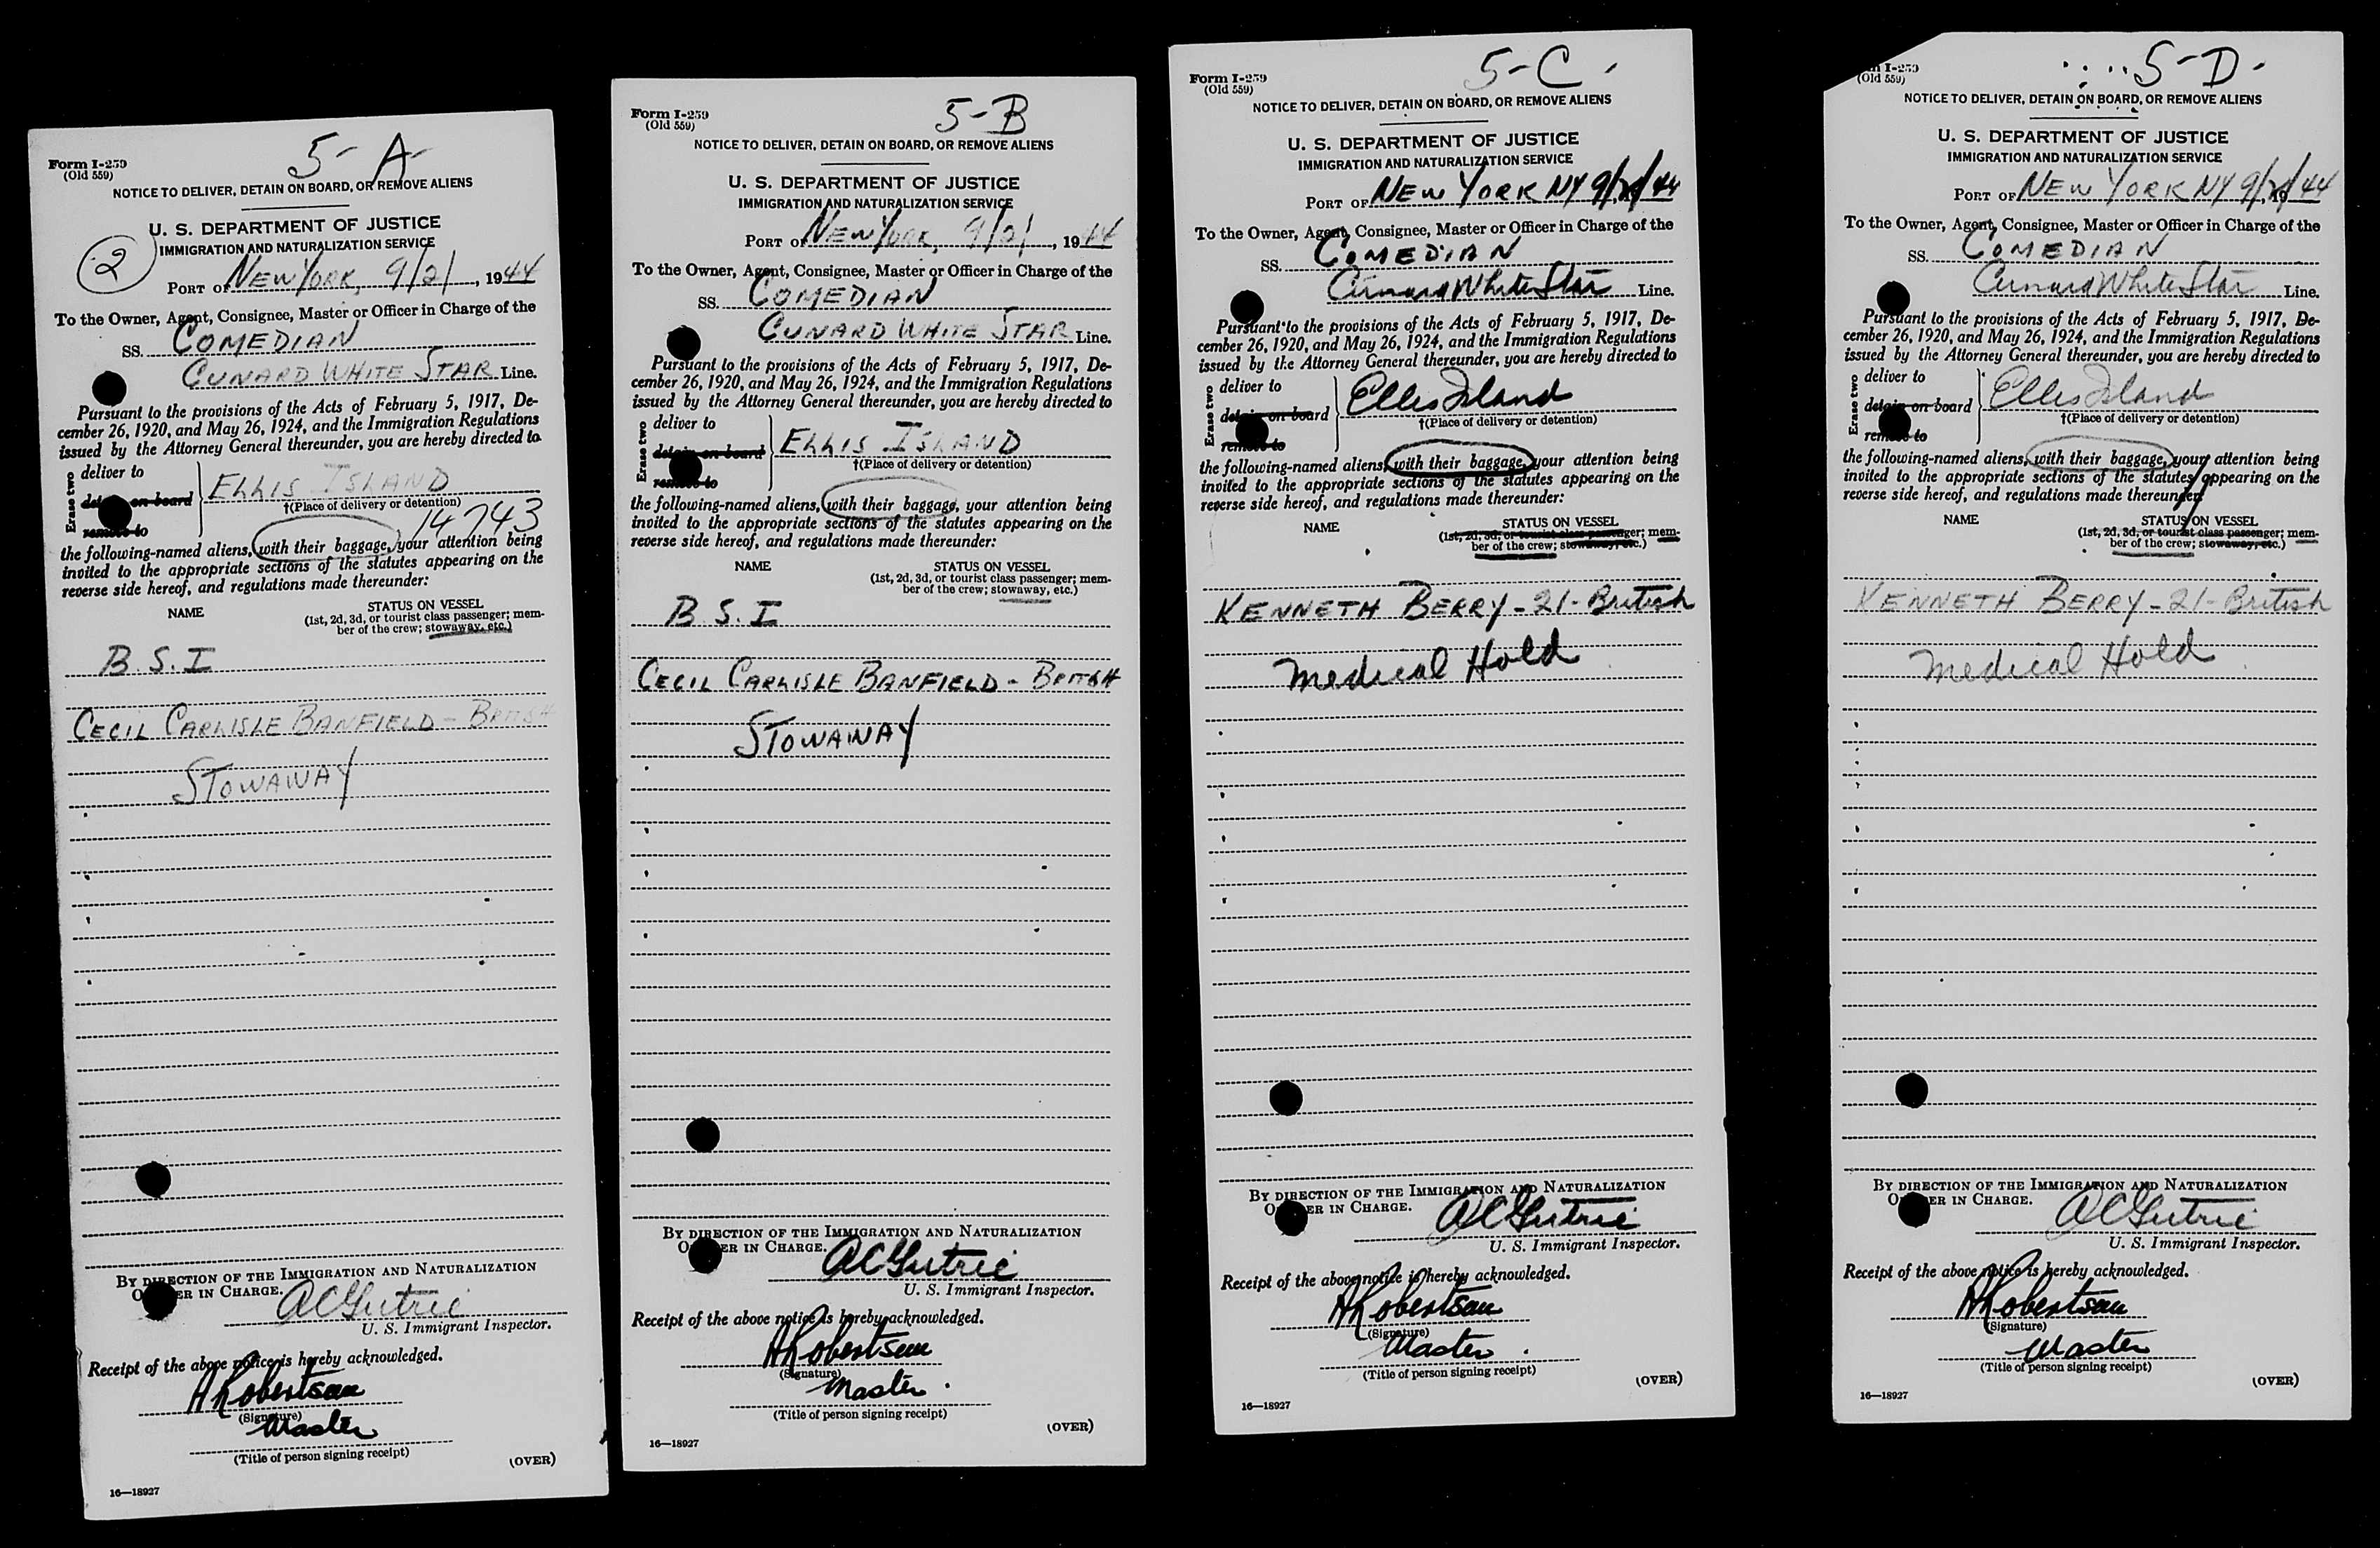 5-A-
Form I-259
(Old 559)
NOTICE TO DELIVER, DETAIN ON BOARD, OR REMOVE ALIENS
U. S. DEPARTMENT OF JUSTICE
IMMIGRATION AND NATURALIZATION SERVICE
2
PORT OF NEW YORK, 9/21, 1944
To the Owner, Agent, Consignee, Master or Officer in Charge of the
SS. COMEDIAN
CUNARD WHITE STAR Line.
Pursuant to the provisions of the Acts of February 5, 1917, De-
cember 26, 1920, and May 26, 1924, and the Immigration Regulations
issued by the Attorney General thereunder, you are hereby directed to
Erase two
deliver to
detain on board
remove to
ELLIS ISLAND
†(Place of delivery or detention)
14743
the following-named aliens, with their baggage, your attention being
invited to the appropriate sections of the statutes appearing on the
reverse side hereof, and regulations made thereunder:
NAME STATUS ON VESSEL
(1st, 2d, 3d, or tourist class passenger; mem-
ber of the crew; stowaway, etc.)
B.S.I
CECIL CARLISLE BANFIELD - BRITISH
STOWAWAY
BY DIRECTION OF THE IMMIGRATION AND NATURALIZATION
OFFICER IN CHARGE.
ACGutrie
U. S. Immigrant Inspector.
Receipt of the above notice is hereby acknowledged.
ARobertson
(Signature)
Master
(Title of person signing receipt)
(OVER)
16—18927
5-B
Form I-259
(Old 559)
NOTICE TO DELIVER, DETAIN ON BOARD, OR REMOVE ALIENS
U. S. DEPARTMENT OF JUSTICE
IMMIGRATION AND NATURALIZATION SERVICE
PORT OF NEW YORK, 9/21, 1944
To the Owner, Agent, Consignee, Master or Officer in Charge of the
SS. COMEDIAN
CUNARD WHITE STAR Line.
Pursuant to the provisions of the Acts of February 5, 1917, De-
cember 26, 1920, and May 26, 1924, and the Immigration Regulations
issued by the Attorney General thereunder, you are hereby directed to
Erase two
deliver to
detain on board
remove to
ELLIS ISLAND
†(Place of delivery or detention)
the following-named aliens, with their baggage, your attention being
invited to the appropriate sections of the statutes appearing on the
reverse side hereof, and regulations made thereunder:
NAME STATUS ON VESSEL
(1st, 2d, 3d, or tourist class passenger; mem-
ber of the crew; stowaway, etc.)
B.S.I
CECIL CARLISLE BANFIELD - BRITISH
STOWAWAY
BY DIRECTION OF THE IMMIGRATION AND NATURALIZATION
OFFICER IN CHARGE.
ACGutrie
U. S. Immigrant Inspector.
Receipt of the above notice is hereby acknowledged.
ARobertson
(Signature)
Master.
(Title of person signing receipt)
(OVER)
16—18927
5-C-
Form I-259
(Old 559)
NOTICE TO DELIVER, DETAIN ON BOARD, OR REMOVE ALIENS
U. S. DEPARTMENT OF JUSTICE
IMMIGRATION AND NATURALIZATION SERVICE
PORT OF NEW YORK NY 9/21/44
To the Owner, Agent, Consignee, Master or Officer in Charge of the
SS. COMEDIAN
Cunard White Star Line.
Pursuant to the provisions of the Acts of February 5, 1917, De-
cember 26, 1920, and May 26, 1924, and the Immigration Regulations
issued by the Attorney General thereunder, you are hereby directed to
Erase two
deliver to
detain on board
remove to
Ellis Island
†(Place of delivery or detention)
the following-named aliens, with their baggage, your attention being
invited to the appropriate sections of the statutes appearing on the
reverse side hereof, and regulations made thereunder:
NAME STATUS ON VESSEL
(1st, 2d, 3d, or tourist class passenger; mem-
ber of the crew; stowaway, etc.)
KENNETH BERRY - 21 - British
Medical Hold
BY DIRECTION OF THE IMMIGRATION AND NATURALIZATION
OFFICER IN CHARGE.
ACGutrie
U. S. Immigrant Inspector.
Receipt of the above notice is hereby acknowledged.
ARobertson
(Signature)
Master.
(Title of person signing receipt)
(OVER)
16—18927
5-D-
m I-259
(Old 559)
NOTICE TO DELIVER, DETAIN ON BOARD, OR REMOVE ALIENS
U. S. DEPARTMENT OF JUSTICE
IMMIGRATION AND NATURALIZATION SERVICE
PORT OF NEW YORK NY 9/21/44
To the Owner, Agent, Consignee, Master or Officer in Charge of the
SS. COMEDIAN
Cunard White Star Line.
Pursuant to the provisions of the Acts of February 5, 1917, De-
cember 26, 1920, and May 26, 1924, and the Immigration Regulations
issued by the Attorney General thereunder, you are hereby directed to
Erase two
deliver to
detain on board
remove to
Ellis Island
†(Place of delivery or detention)
the following-named aliens, with their baggage, your attention being
invited to the appropriate sections of the statutes appearing on the
reverse side hereof, and regulations made thereunder:
NAME STATUS ON VESSEL
(1st, 2d, 3d, or tourist class passenger; mem-
ber of the crew; stowaway, etc.)
KENNETH BERRY - 21 - British
Medical Hold
BY DIRECTION OF THE IMMIGRATION AND NATURALIZATION
OFFICER IN CHARGE.
ACGutrie
U. S. Immigrant Inspector.
Receipt of the above notice is hereby acknowledged.
ARobertson
(Signature)
Master
(Title of person signing receipt)
(OVER)
16—18927